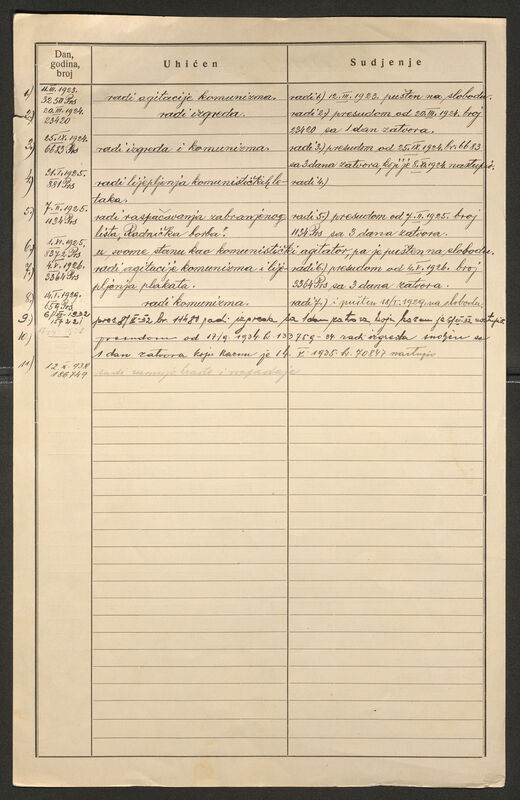 Dan,
godina,
broj
Uhićen
Suđenje
1) 11.III.1923.
3250 Prs
radi agitacije komunizma.
radi 1) 12.III.1923. pušten na slobodu.
2) 20.III.1924.
23420
radi izgreda.
radi 2) presudom od 20.III.1924. broj
23420 sa 1 dan zatvora.
3) 25.IX.1924.
6623 Prs
radi izgreda i komunizma.
radi 3) presudom od 25.IX.1924. br. 6683
sa 3 dana zatvora koji je nastupio.
4) 21.I.1925.
381 Prs
radi lijepljenja komunističkih le-
taka.
radi 4)
5) 7.II.1925.
1134 Prs
radi raspačavanja zabranjenog
lista „Radnička borba".
radi 5) presudom od 7.II.1925. broj
1134 Prs sa 3 dana zatvora.
6) 1.VI.1925.
5372 Prs
u svome stanu kao komunistički agitator, pa je pušten na slobodu.
7) 4.V.1926.
3364 Prs
radi agitacije komunizma i lije-
pljenja plakata.
radi 6) presudom od 4.V.1926. broj
3364 Prs sa 3 dana zatvora.
8) 14.I.1929.
154 Prs
radi komunizma.
radi 7.) i pušten 18/I.1929. na slobodu.
9) 6/VI-1932
pres. br. 11489 radi izgreda sa 1 dan zatvora koju kaznu je nastupio
10)
presudom od 17/9. 1934. b. 133759-34 radi izgreda snižen sa
1 dan zatvora koju kaznu je 14. X 1935. b. 70847 nastupio
11) 12.X.938
186749
radi